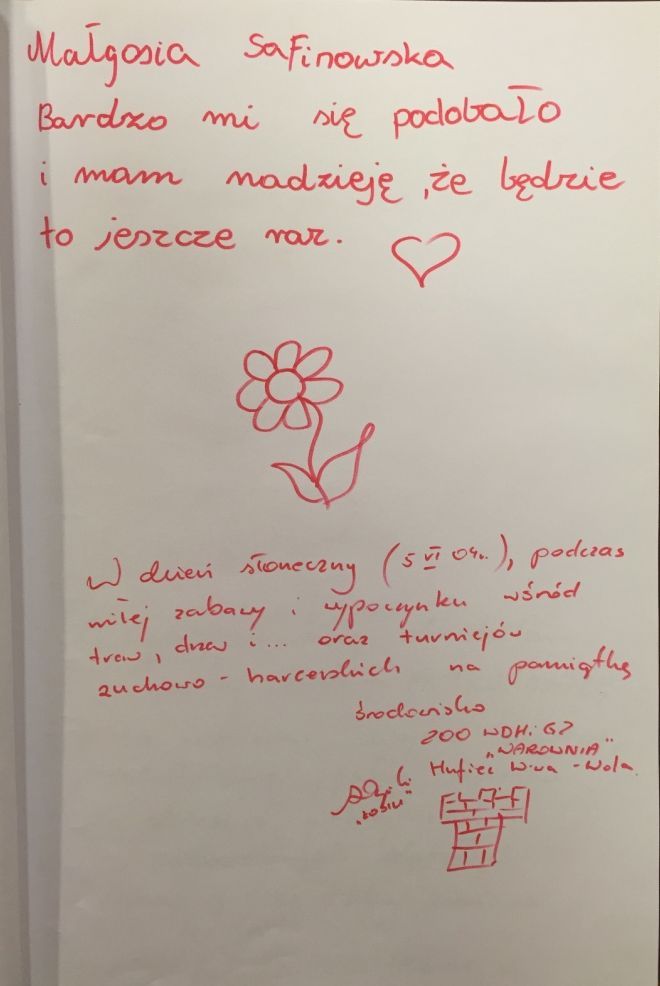 Małgosia Safinowska
Bardzo mi się podobało
i mam nadzieję, że będzie
to jeszcze raz.
W dzień słoneczny (5 VI 04r.), podczas
miłej zabawy i wypoczynku wśród
traw, drzew i... oraz turniejów
zuchowo-harcerskich na pamiątkę
środowisko
200 WDH. GZ
"WAROWNIA"
Hufiec W-wa-Wola